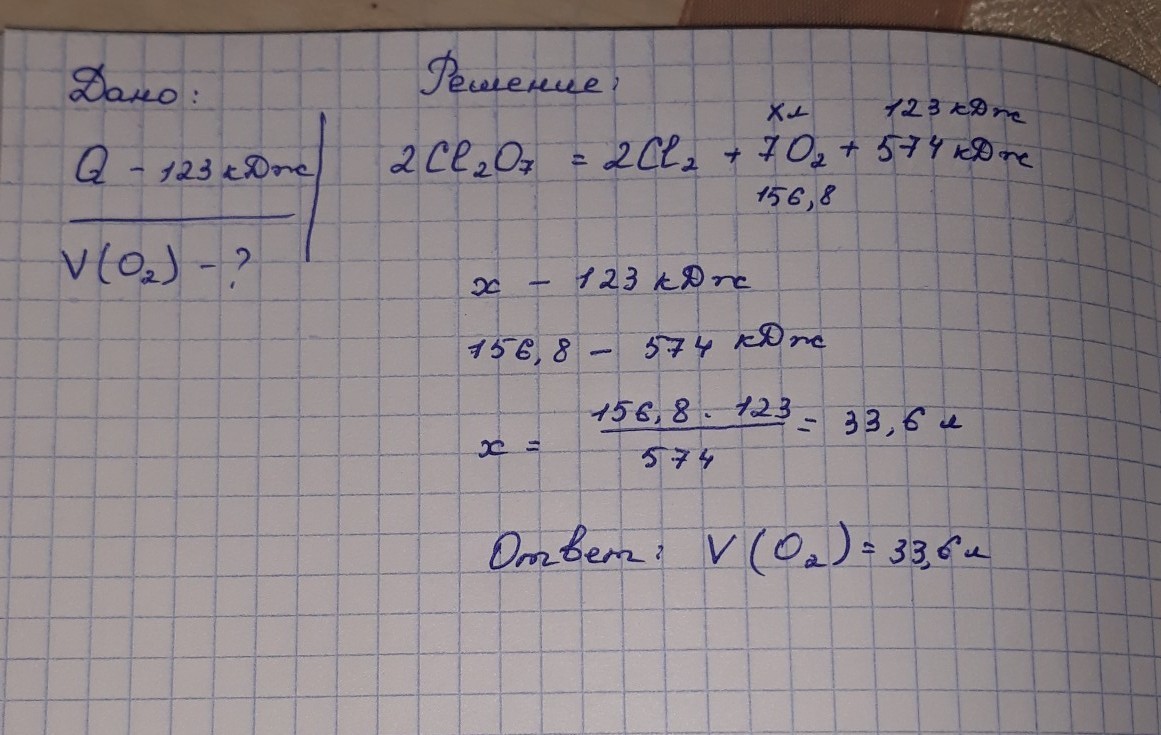 Дано:
Q - 123 кДж
V(O₂) - ?
Решение:
х л 123 кДж
2Cl₂O₇ = 2Cl₂ + 7O₂ + 574 кДж
156,8
х - 123 кДж
156,8 - 574 кДж
х = 156,8 · 123 / 574 = 33,6 л
Ответ: V(O₂) = 33,6 л